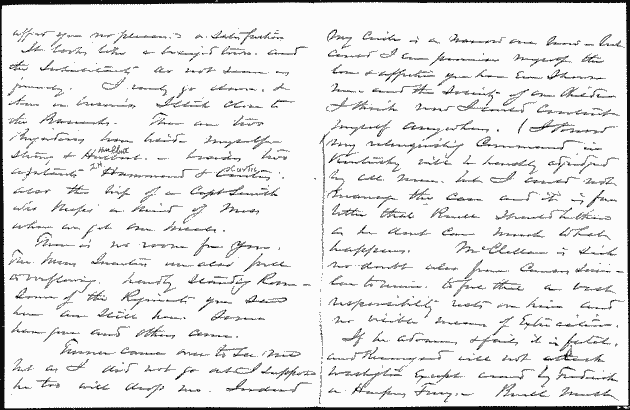 afford you no pleasure or satisfaction
It looks like a besieged town and
the Inhabitants do not seem as
friendly. I rarely go down, &
then on business I stick close to
the Barracks. There are two
Brigadiers here beside myself
Strong & Hurlbut Hurlbut - besides two
adjutants Hammond &
also the wife of a Capt Smith
who keeps a kind of Mess
where we get our meals.
There is no room for you.
The Mess Quarters are also full
overflowing. hardly Standing Room -
Some of the Regiments you saw
here are still here. Some
have gone and others come.
Turner came over to see me
but as I did not go out I suppose
he too will drop me. Indeed
My circle is a narrow one now - but
could I but promise myself the
love & affection you have ever shown
me and the Society of our children
I think now I could content
myself anywhere. (I know
my relinquishing Command in
Kentucky will be harshly
by all men. but I could not
manage the case and it is far
better that Buell should be there
as he dont care much what
happens. McClellan is sick
no doubt also from causes similar
to mine. to feel that a vast
responsibility rests on him and
no visible means of Extrication.
If he advances & fails, it is fatal,
and Beauregard will not attack
Washington except around by Frederick
or Harpers Ferry - Buell must